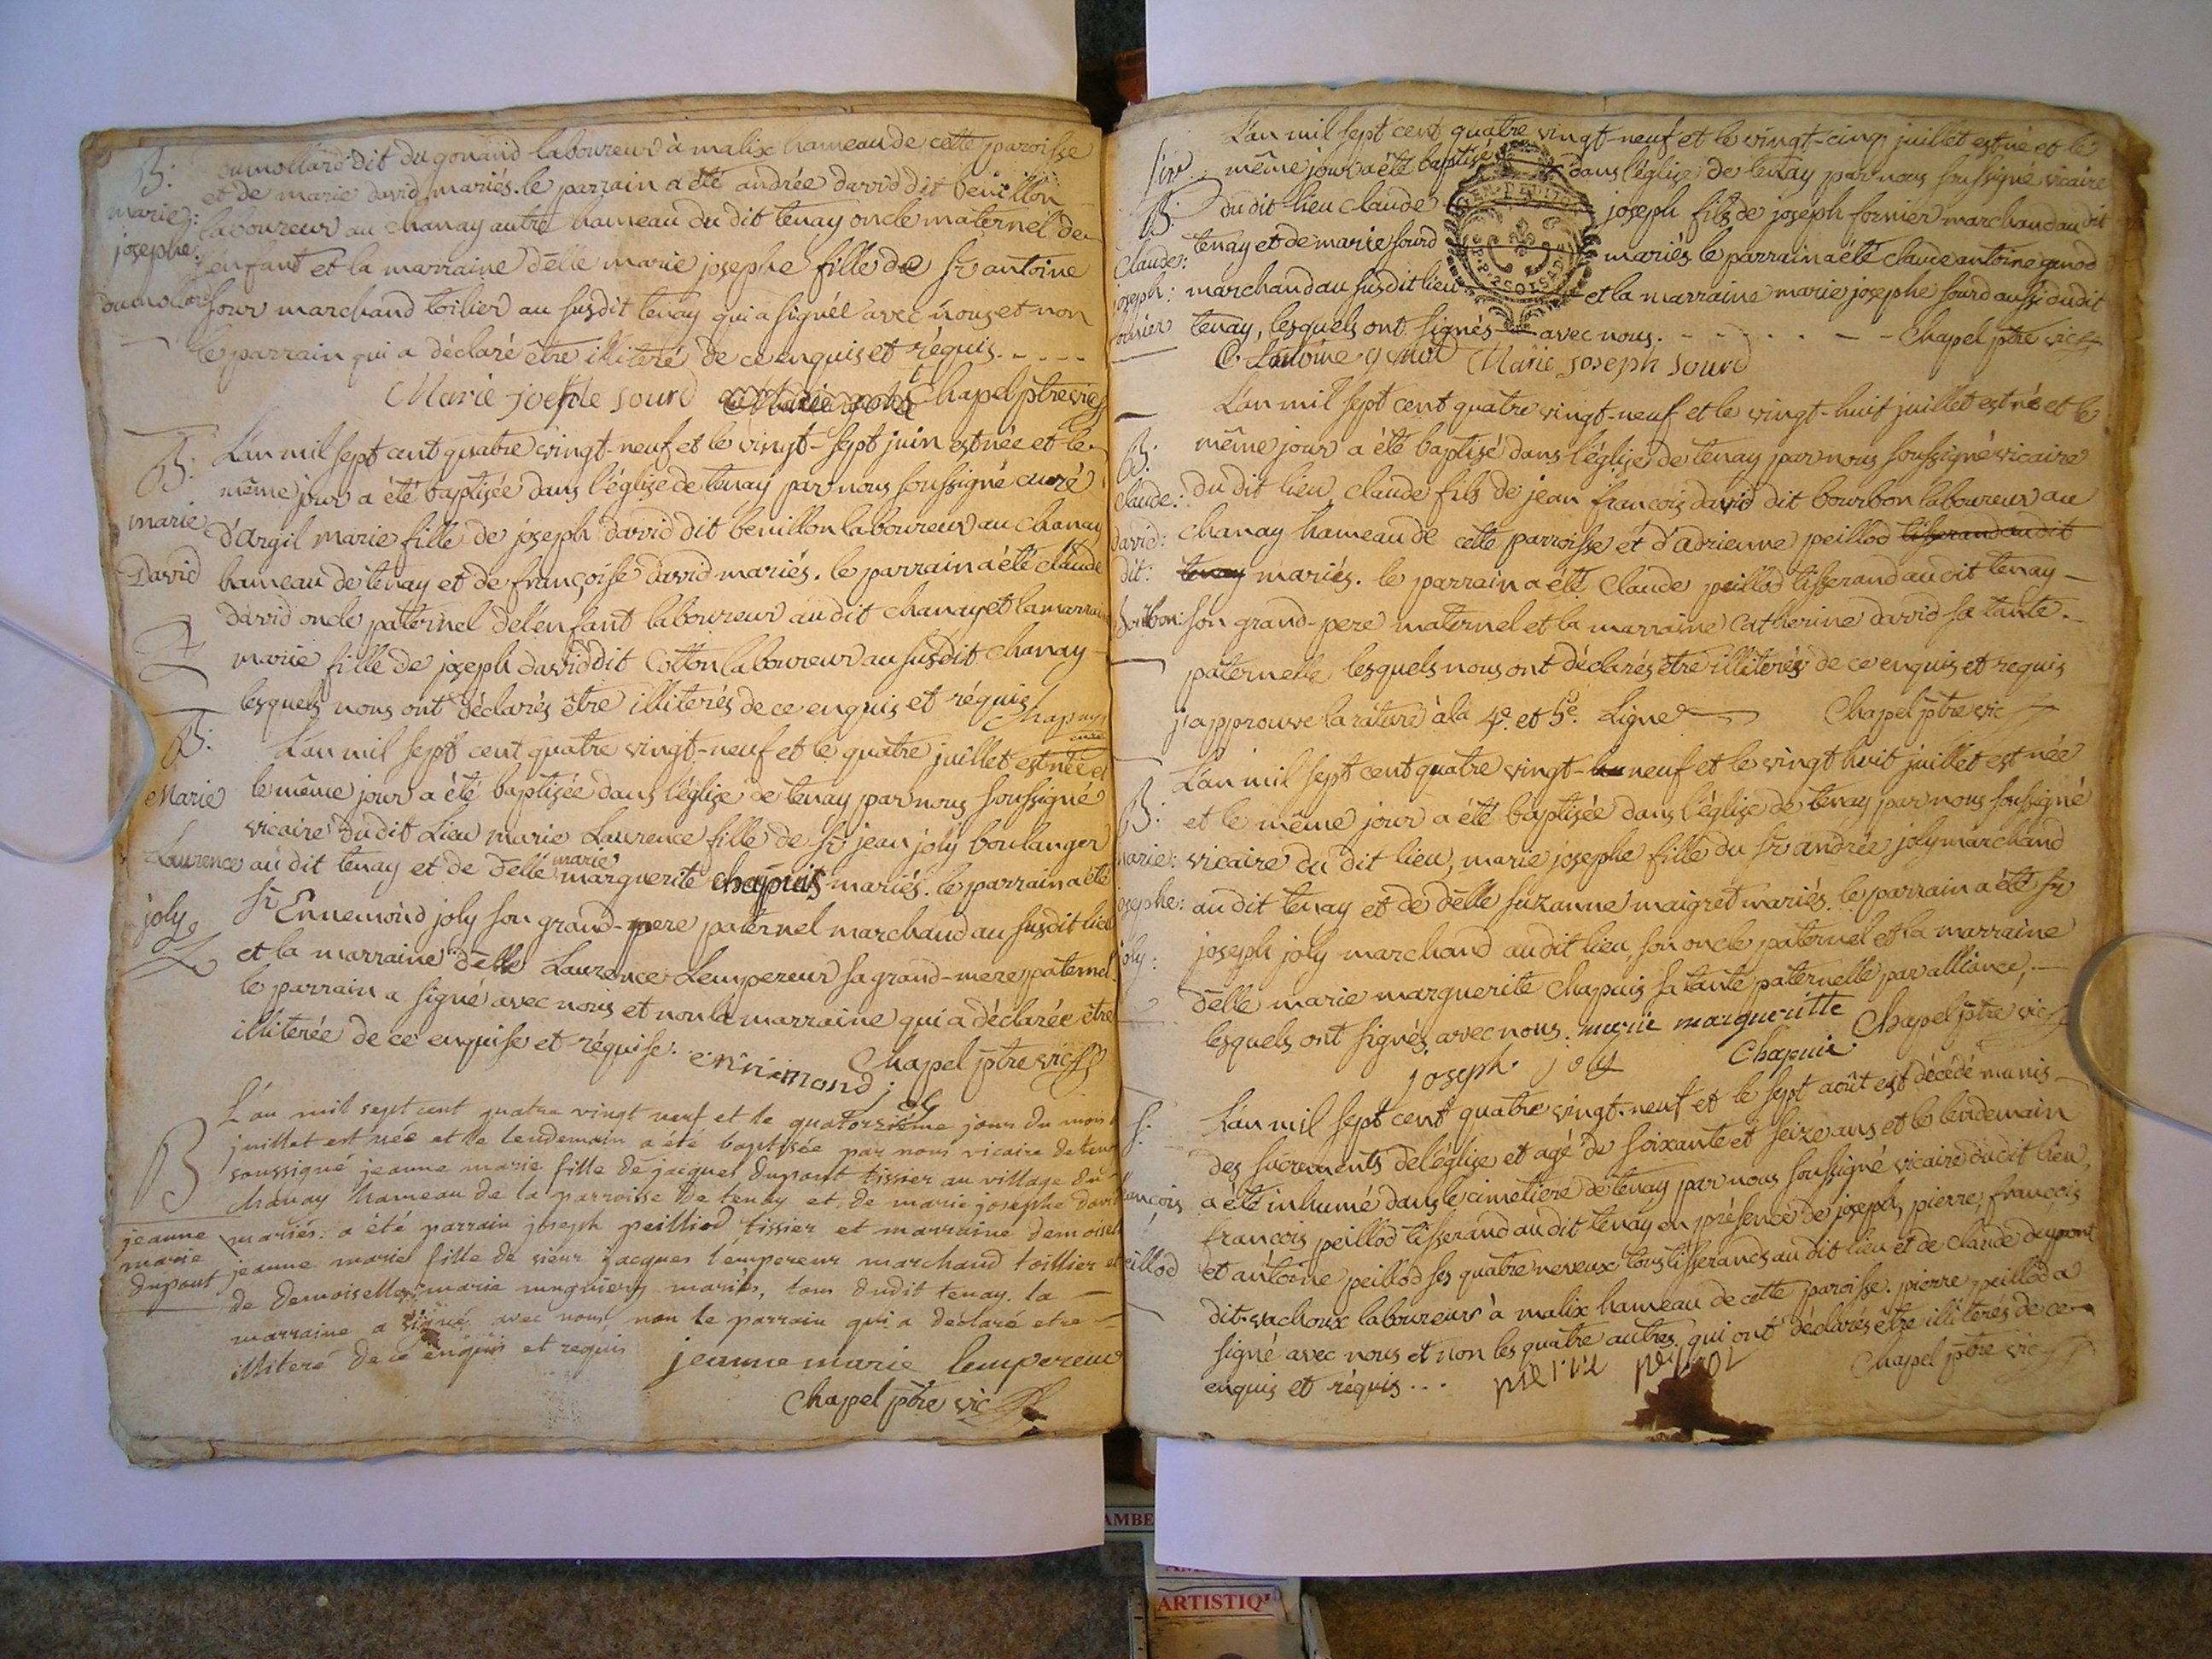 B. dumollard dit du gonand laboureur à malix hameau de cette paroisse
et de marie david mariés. le parrain a été andrée david dit benillon
marie: laboureur au chanay autre hameau du dit tenay oncle maternel de
josephe: l'enfant et la marraine d​elle marie josephe fille de sr antoine
dumollard sour marchand toilier au susdit tenay qui a signée avec nous et non
le parrain qui a déclaré être illiteré de ce enquis et réquis. - - - -
Marie josephe sourd Chapel ptre vic
B. L'an mil sept cent quatre vingt-neuf et le vingt-sept juin est née et le
même jour a été baptisée dans l'église de tenay par nous soussigné curé
marie d'argil marie fille de joseph david dit benillon laboureur au chanay
David hameau de tenay et de françoise david mariés. le parrain a été claude
david oncle paternel de l'enfant laboureur au dit chanay et la marraine
marie fille de joseph david dit Cotton laboureur au susdit chanay -
lesquels nous ont déclarés être illiterés de ce enquis et réquis
Chapuy
curé
B. L'an mil sept cent quatre vingt-neuf et le quatre juillet est née et
Marie le même jour a été baptisée dans l'église de tenay par nous soussigné
vicaire du dit Lieu marie Laurence fille de sr jean joly boulanger
marie
Laurence au dit tenay et de delle marguerite chapuis mariés. le parrain a été
joly sr Ennemond joly son grand-pere paternel marchand au susdit lieu
et la marraine delle Laurence Lempereur sa grand-mere paternel.
le parrain a signé avec nous et non la marraine qui a déclarée être
illiterée de ce enquise et réquise. ennimond joly Chapel ptre vic
B L'an mil sept cent quatre vingt neuf et le quatorzième jour du mois
juillet est née et le lendemain a été baptisée par nous vicaire de tenay
soussigné jeanne marie fille de jacques dupont tissier au village du
chanay hameau de la parroisse de tenay et de marie josephe david
jeanne mariés. a été parrain joseph peilliod tissier et marraine demoisel
marie jeanne marie fille de sieur jacques lempereur marchand toillier et
dupont de demoiselle marie mariés, tous dudit tenay. la -
marraine a signé avec nous non le parrain qui a déclaré etre -
illiteré de ce enquis et requis jeanne marie lempereur
Chapel ptre vic
L'an mil sept cent quatre vingt-neuf et le vingt-cinq juillet est né et le
même jour a été baptisé dans l'église de tenay par nous soussigné vicaire
B. du dit lieu claude joseph fils de joseph fornier marchand au dit
Claude: tenay et de marie sourd mariés le parrain a été claude antoine genod
joseph: marchand au susdit lieu et la marraine marie josephe sourd aussi du dit
fornier tenay, lesquels ont signés avec nous. - - - - - - - Chapel ptre vic
C. Antoine genod Marie joseph sourd
L'an mil sept cent quatre vingt-neuf et le vingt-huit juillet est né et le
B. même jour a été baptisé dans l'église de tenay par nous soussigné vicaire
claude: du dit lieu, claude fils de jean françois david dit bourbon laboureur au
david: chanay hameau de cette parroisse et d'adrienne peillod tisserand au dit
dit: tenay mariés. le parrain a été Claude peillod tisserand au dit tenay -
bourbon: son grand-pere maternel et la marraine Catherine david sa tante.
paternelle lesquels nous ont déclarés être illiterés de ce enquis et requis
j'approuve la rature à la 4e. et 5e. Ligne Chapel ptre vic
L'an mil sept cent quatre vingt-neuf et le vingt huit juillet est née
B. et le même jour a été baptisée dans l'église de tenay par nous soussigné
marie: vicaire du dit lieu, marie josephe fille du sr andrée joly marchand
josephe: au dit tenay et de delle suzanne maigret mariés. le parrain a été sr
joly: joseph joly marchand au dit lieu, son oncle paternel et la marraine
delle marie marguerite Chapuis sa tante paternelle par alliance, -
lesquels ont signés avec nous. marie margueritte Chapel ptre vic
joseph. joly Chapuis
S. L'an mil sept cent quatre vingt-neuf et le sept août est décédé munis
des sacrements de l'église et agé de soixante et seize ans et le lendemain
francois a été inhumé dans le cimetiere de tenay par nous soussigné vicaire du dit lieu,
françois peillod tisserand au dit tenay en présence de joseph, pierre, françois
peillod et antoine peillod ses quatre neveux tous tisserands au dit lieu et de claude dupont
dit vachoux laboureur à malix hameau de cette paroisse. pierre peillod a
signé avec nous et non les quatre autres qui ont déclarés être illiterés de ce
enquis et réquis... pierre peillod Chapel ptre vic
ARTISTIQ